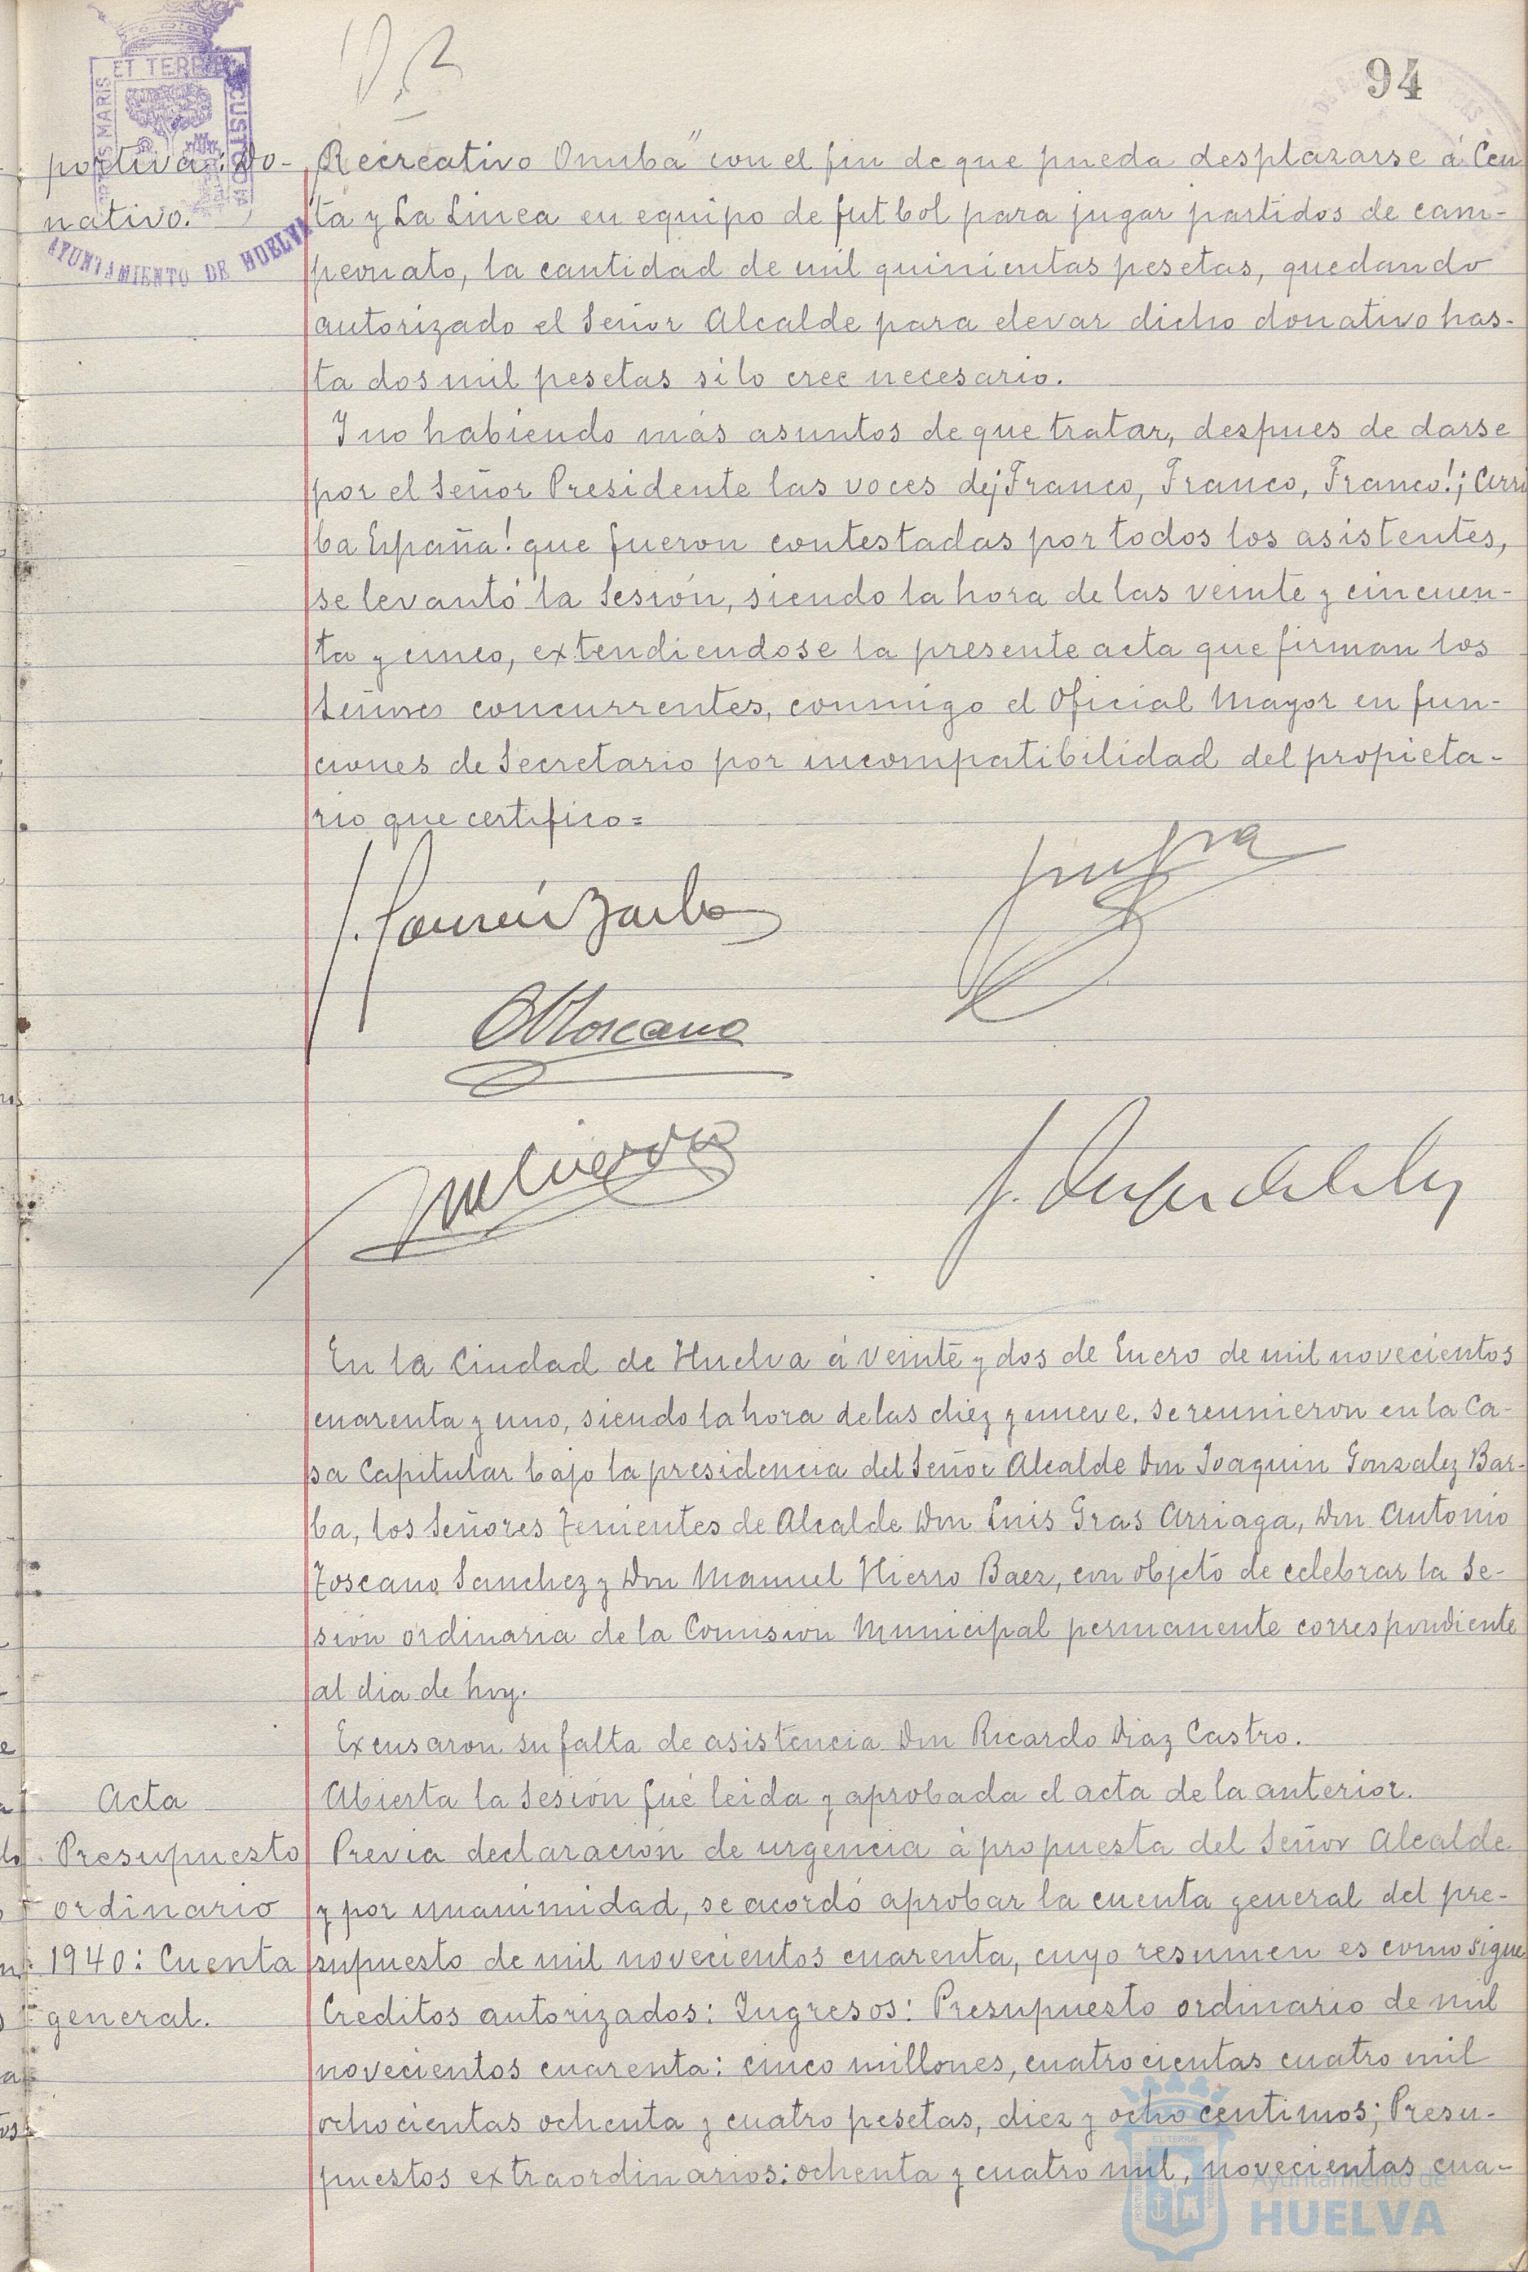 94
PORTUS MARIS ET TERRAE CUSTODIA
AYUNTAMIENTO DE HUELVA
portiva: Do-
nativo.
Recreativo Onuba" con el fin de que pueda desplazarse á Ceu
ta y La Linea en equipo de futbol para jugar partidos de cam-
peonato, la cantidad de mil quinientas pesetas, quedando
autorizado el Señor Alcalde para elevar dicho donativo has-
ta dos mil pesetas si lo cree necesario.
Y no habiendo más asuntos de que tratar, despues de darse
por el Señor Presidente las voces de ¡Franco, Franco, Franco! ¡Arri
ba España! que fueron contestadas por todos los asistentes,
se levantó la Sesión, siendo la hora de las veinte y cincuen-
ta y cinco, extendiendose la presente acta que firman los
Señores concurrentes, conmigo el Oficial Mayor en fun-
ciones de Secretario por incompatibilidad del propieta-
rio que certifico=
AToscano
En la Ciudad de Huelva á veinte y dos de Enero de mil novecientos
cuarenta y uno, siendo la hora de las diez y nueve, se reunieron en la Ca-
sa Capitular bajo la presidencia del Señor Alcalde Don Joaquin Gonzalez Bar-
ba, los Señores Tenientes de Alcalde Don Luis Gras Arriaga, Don Antonio
Toscano Sanchez y Don Manuel Hierro Baez, con objeto de celebrar la Se-
sión ordinaria de la Comisión Municipal permanente correspondiente
al dia de hoy.
Excusaron su falta de asistencia Don Ricardo Diaz Castro.
Acta
Abierta la Sesión fué leida y aprobada el acta de la anterior.
Presupuesto
ordinario
1940: Cuenta
general.
Previa declaración de urgencia á propuesta del Señor Alcalde
y por unanimidad, se acordó aprobar la cuenta general del pre-
supuesto de mil novecientos cuarenta, cuyo resumen es como sigue
Creditos autorizados: Ingresos: Presupuesto ordinario de mil
novecientos cuarenta: cinco millones, cuatrocientas cuatro mil
ochocientas ochenta y cuatro pesetas, diez y ocho centimos; Presu-
puestos extraordinarios: ochenta y cuatro mil, novecientas cua-
Ayuntamiento de
HUELVA